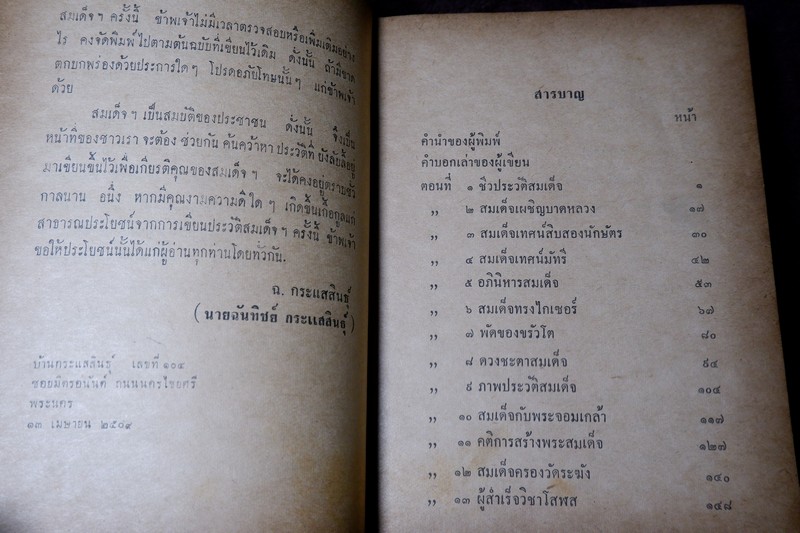 สมเด็จฯ ครั้งนี้ ข้าพเจ้าไม่มีเวลาตรวจสอบหรือเพิ่มเติมอย่าง
ไร คงจัดพิมพ์ไปตามต้นฉบับที่เขียนไว้เดิม ดังนั้น ถ้ามีขาด
ตกบกพร่องด้วยประการใดๆ โปรดอภัยโทษนั้นๆ แก่ข้าพเจ้า
ด้วย
สมเด็จฯ เป็นสมบัติของประชาชน ดังนั้น จึงเป็น
หน้าที่ของชาวเรา จะต้อง ช่วยกัน ค้นคว้าหา ประวัติที่ ยังลี้ลับอยู่
มาเขียนขึ้นไว้เพื่อเกียรติคุณของสมเด็จฯ จะได้คงอยู่ตราบชั่ว
กาลนาน อนึ่ง หากมีคุณงามความดีใดๆ เกิดขึ้นเกื้อกูลแก่
สาธารณประโยชน์จากการเขียนประวัติสมเด็จฯ ครั้งนี้ ข้าพเจ้า
ขอให้ประโยชน์นั้นได้แก่ผู้อ่านทุกท่านโดยทั่วกัน.
ฉ. กระแสสินธุ์
( นายฉันทิชย์ กระแสสินธุ์ )
บ้านกระแสสินธุ์ เลขที่ ๑๐๔
ซอยมิตรอนันต์ ถนนนครไชยศรี
พระนคร
๑๓ เมษายน ๒๕๐๙
สารบาญ
หน้า
คำนำของผู้พิมพ์
คำบอกเล่าของผู้เขียน
ตอนที่ ๑ ชีวประวัติสมเด็จ ๑
,, ๒ สมเด็จเผชิญบาดหลวง ๑๗
,, ๓ สมเด็จเทศน์สิบสองนักษัตร ๓๐
,, ๔ สมเด็จเทศน์มัทรี ๔๒
,, ๕ อภินิหารสมเด็จ ๕๓
,, ๖ สมเด็จทรงไกเซอร์ ๖๗
,, ๗ พัดของขรัวโต ๘๐
,, ๘ ดวงชะตาสมเด็จ ๙๔
,, ๙ ภาพประวัติสมเด็จ ๑๐๔
,, ๑๐ สมเด็จกับพระจอมเกล้า ๑๑๗
,, ๑๑ คติการสร้างพระสมเด็จ ๑๒๗
,, ๑๒ สมเด็จครองวัดระฆัง ๑๔๐
,, ๑๓ ผู้สำเร็จวิชาโสฬส ๑๔๘